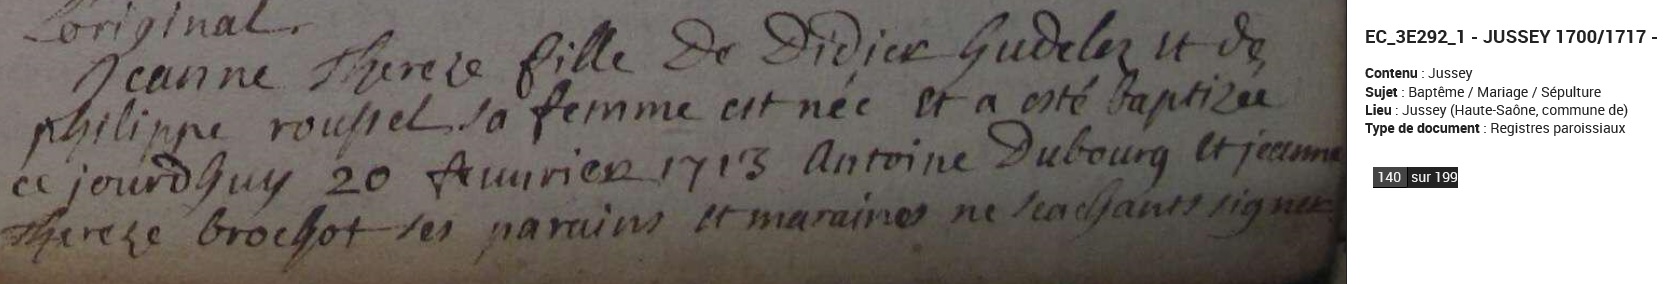 Loriginal.
Jeanne Thereze fille De Didier Gudelez et de
philippe roussel sa femme est née et a esté baptizée
ce jourdhuy 20 feuurier 1713 Antoine Dubourg et jeanne
Thereze brochot ses parains et maraines ne scachants signer
EC_3E292_1 - JUSSEY 1700/1717 -
Contenu : Jussey
Sujet : Baptême / Mariage / Sépulture
Lieu : Jussey (Haute-Saône, commune de)
Type de document : Registres paroissiaux
140 sur 199